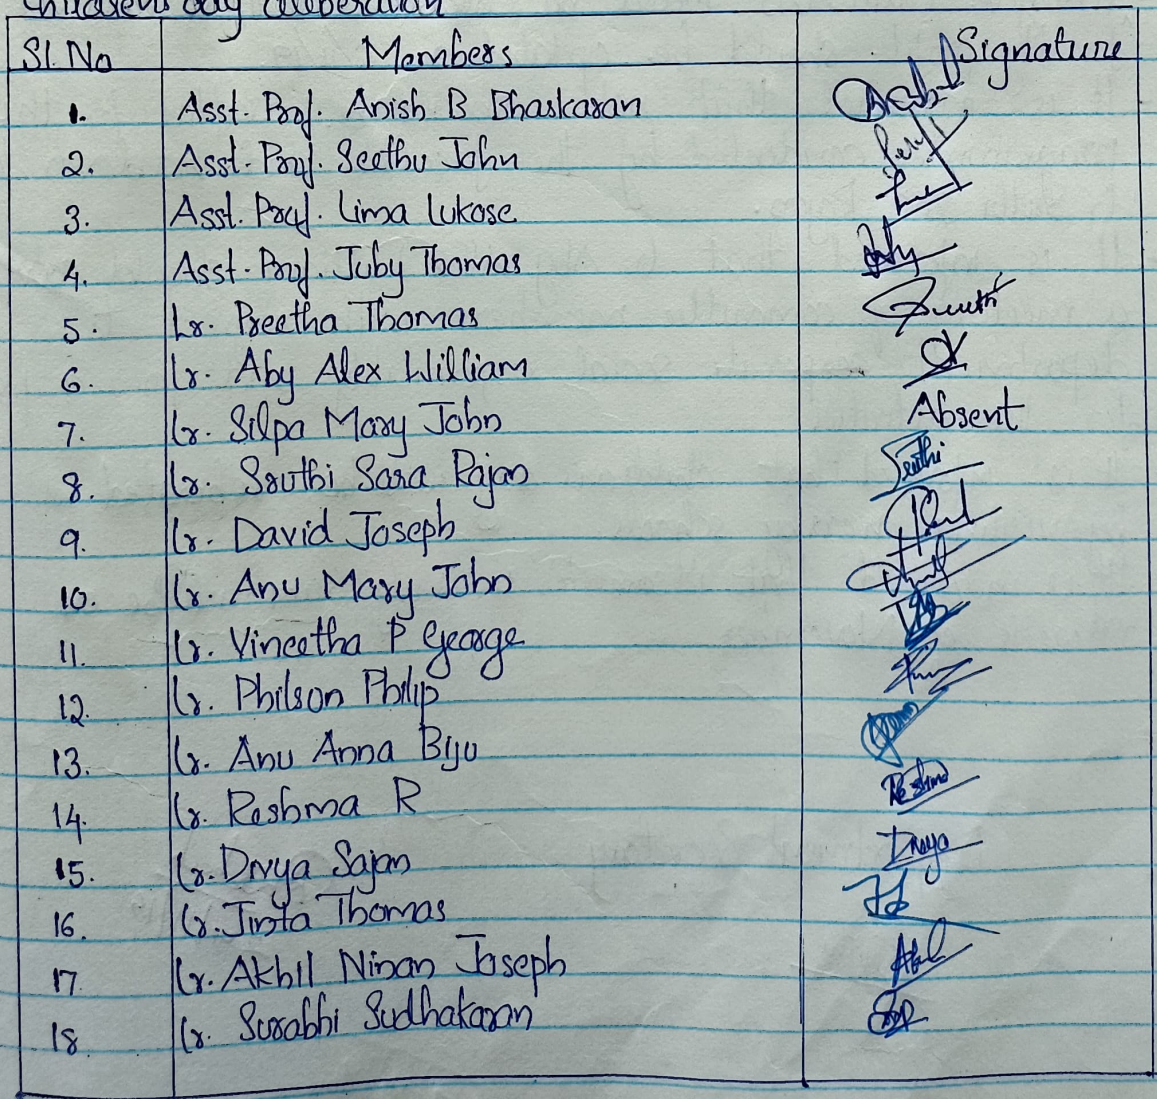 Childrens day celiberation
Sl. No Members Signature
1. Asst. Prof. Anish B Bhaskaran
2. Asst. Prof. Seethu John
3. Asst. Prof. Lima Lukose
4. Asst. Prof. Juby Thomas
5. Lr. Preetha Thomas
6. Lr. Aby Alex William
7. Lr. Silpa Mary John Absent
8. Lr. Sruthi Sara Rajan Sruthi
9. Lr. David Joseph
10. Lr. Anu Mary John
11. Lr. Vineetha P George
12. Lr. Philson Philip
13. Lr. Anu Anna Biju
14. Lr. Reshma R Reshma
15. Lr. Divya Sajan Divya
16. Lr. Jinta Thomas
17. Lr. Akhil Ninan Joseph
18. Lr. Surabhi Sudhakaran